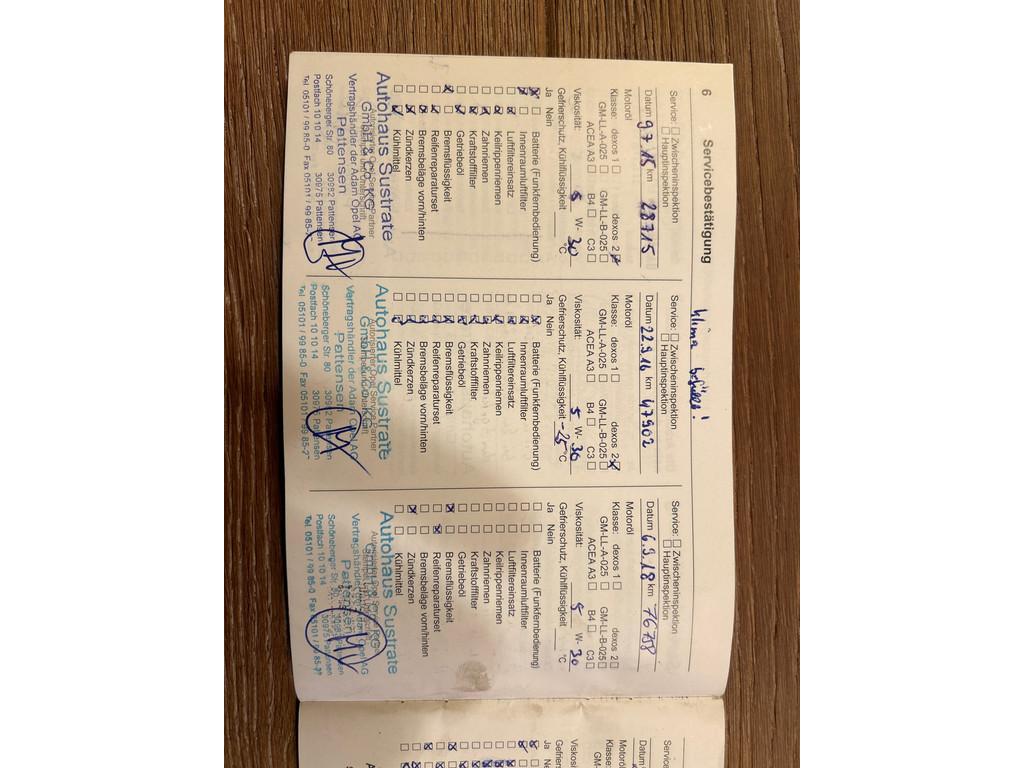 6 Servicebestätigung
Service: ☐ Zwischeninspektion
☐ Hauptinspektion
Datum 9.7.15 km 28715
Motoröl
Klasse: dexos 1 ☐ dexos 2 ☒
GM-LL-A-025 ☐ GM-LL-B-025 ☐
ACEA A3 ☐ B4 ☐ C3 ☐
Viskosität: 5 W- 30
Gefrierschutz, Kühlflüssigkeit °C
Ja Nein
Batterie (Funkfernbedienung)
Innenraumluftfilter
Luftfiltereinsatz
Keilrippenriemen
Zahnriemen
Kraftstofffilter
Getriebeöl
Bremsflüssigkeit
Reifenreparaturset
Bremsbeläge vorn/hinten
Zündkerzen
Kühlmittel
Autohaus Sustrate
GmbH & Co. KG
Vertragshändler der Adam Opel AG
Pattensen
Schöneberger Str. 80 30982 Pattensen
Postfach 10 10 14 30975 Pattensen
Tel. 05101 / 99 85-0 Fax 05101 / 99 85-
Klima befüllt!
Service: ☐ Zwischeninspektion
☐ Hauptinspektion
Datum 22.9.16 km 47902
Motoröl
Klasse: dexos 1 ☐ dexos 2 ☒
GM-LL-A-025 ☐ GM-LL-B-025 ☐
ACEA A3 ☐ B4 ☐ C3 ☐
Viskosität: 5 W- 30
Gefrierschutz, Kühlflüssigkeit -25 °C
Ja Nein
Batterie (Funkfernbedienung)
Innenraumluftfilter
Luftfiltereinsatz
Keilrippenriemen
Zahnriemen
Kraftstofffilter
Getriebeöl
Bremsflüssigkeit
Reifenreparaturset
Bremsbeläge vorn/hinten
Zündkerzen
Kühlmittel
Autohaus Sustrate
GmbH & Co. KG
Vertragshändler der Adam Opel AG
Pattensen
Schöneberger Str. 80 30982 Pattensen
Postfach 10 10 14 30975 Pattensen
Tel. 05101 / 99 85-0 Fax 05101 / 99 85-
Service: ☐ Zwischeninspektion
☐ Hauptinspektion
Datum 6.9.18 km 76758
Motoröl
Klasse: dexos 1 ☐ dexos 2 ☐
GM-LL-A-025 ☐ GM-LL-B-025 ☐
ACEA A3 ☐ B4 ☐ C3 ☐
Viskosität: 5 W- 30
Gefrierschutz, Kühlflüssigkeit °C
Ja Nein
Batterie (Funkfernbedienung)
Innenraumluftfilter
Luftfiltereinsatz
Keilrippenriemen
Zahnriemen
Kraftstofffilter
Getriebeöl
Bremsflüssigkeit
Reifenreparaturset
Bremsbeläge vorn/hinten
Zündkerzen
Kühlmittel
Autohaus Sustrate
Vertragshändler der Adam Opel AG
Pattensen
Postfach 10 10 14 30975 Pattensen
Tel. 05101 / 99 85-0 Fax 05101 / 99 85-
Service
Datum
Motoröl
Klasse:
GM-LL
Viskosität
Gefrierschutz
Ja